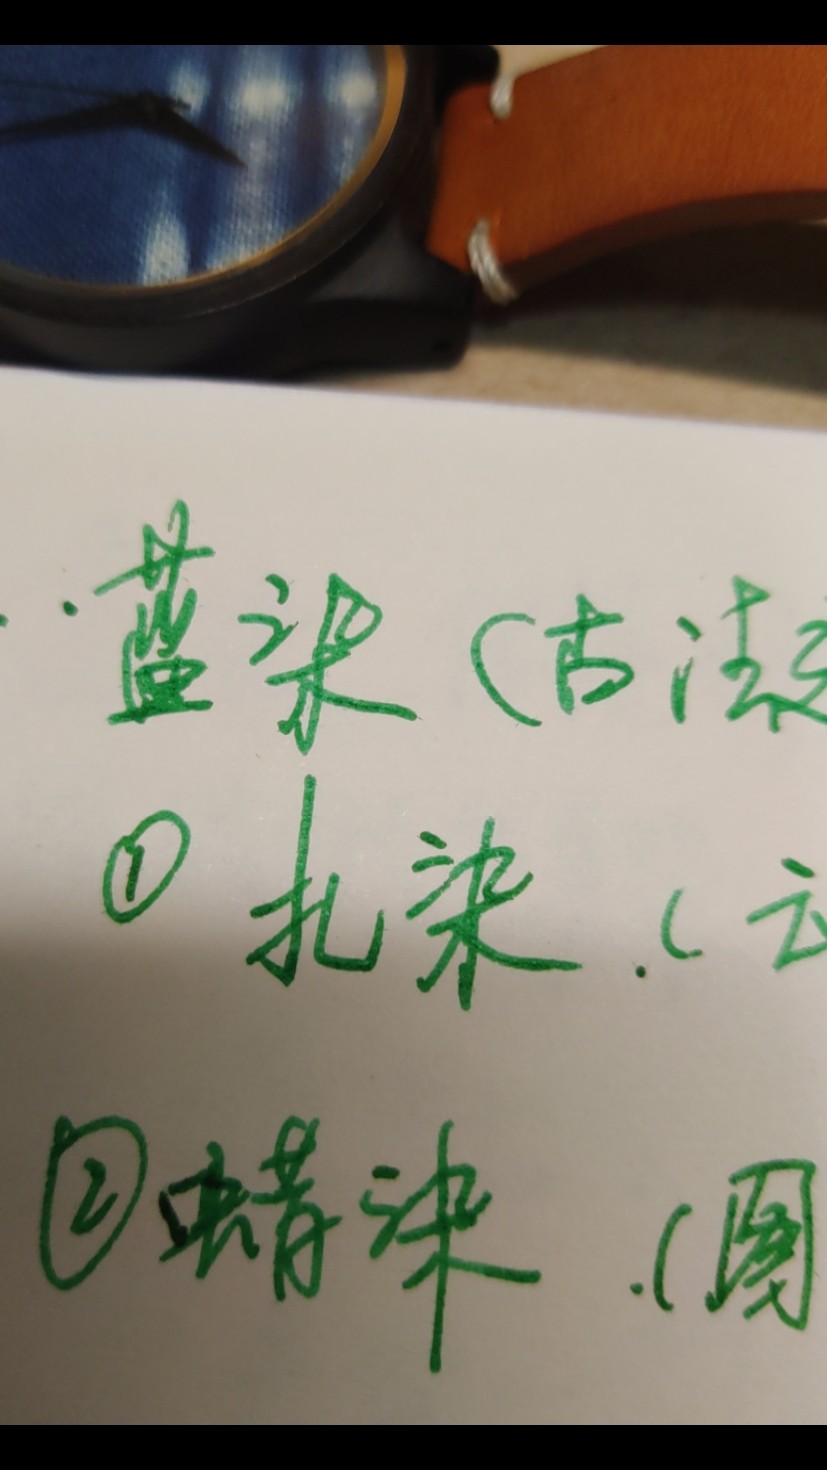 ··蓝染(古法
① 扎染.(云
②蜡染.(图